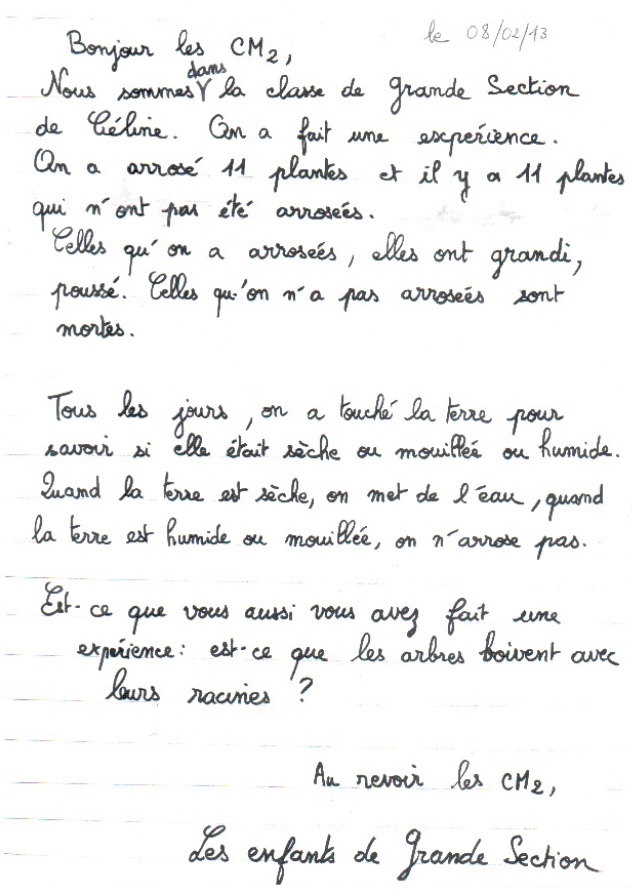 le 08/02/13
Bonjour les CM2,
dans
Nous sommes la classe de Grande Section
de Céline. On a fait une expérience.
On a arrosé 11 plantes et il y a 11 plantes
qui n'ont pas été arrosées.
Celles qu'on a arrosées, elles ont grandi,
poussé. Celles qu'on n'a pas arrosées sont
mortes.
Tous les jours, on a touché la terre pour
savoir si elle était sèche ou mouillée ou humide.
Quand la terre est sèche, on met de l'éau, quand
la terre est humide ou mouillée, on n'arrose pas.
Est-ce que vous aussi vous avez fait une
expérience: est-ce que les arbres boivent avec
leurs racines ?
Au revoir les CM2,
Les enfants de Grande Section